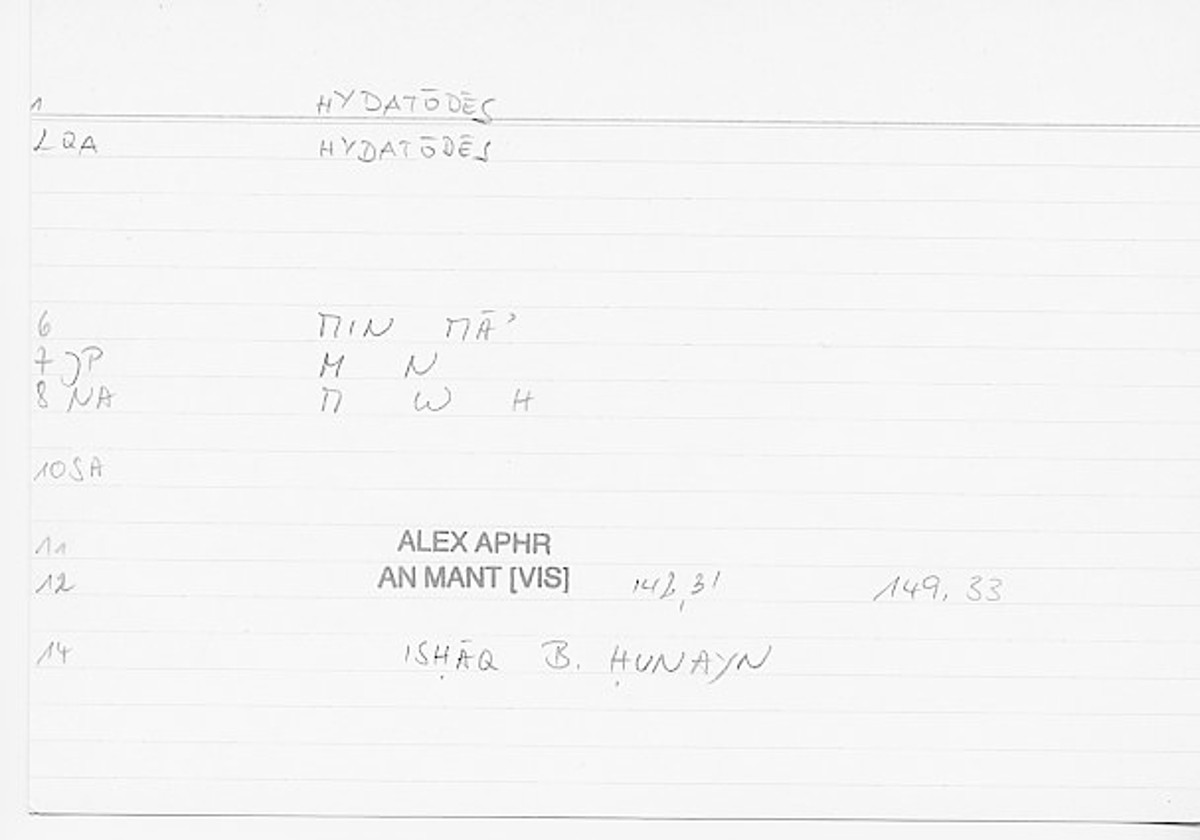 1 HYDATŌDĒS
2 QA HYDATŌDĒS
6 MIN MĀʾ
7 JP M N
8 NA M W H
10 SA
11 ALEX APHR
12 AN MANT [VIS] 142,31 149,33
14 ISḤĀQ B. ḤUNAYN